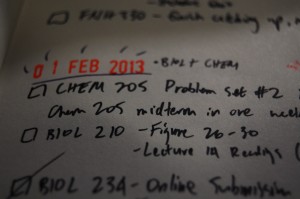 FNH 330 - catching up,
01 FEB 2013 - BIOL + CHEM
CHEM 205 Problem Set #2
Chem 205 midterm in one week
BIOL 210 - Figure 26-30
- Lecture 1A Readings (
BIOL 234 - Online Submission